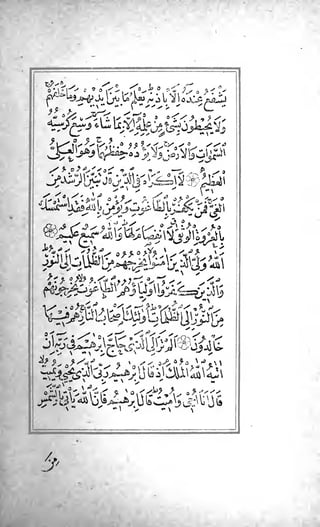 يَشْفَعُ عِنْدَهُ إِلَّا بِإِذْنِهِ يَعْلَمُ مَا بَيْنَ أَيْدِيهِمْ وَمَا خَلْفَهُمْ
وَلَا يُحِيطُونَ بِشَيْءٍ مِنْ عِلْمِهِ إِلَّا بِمَا شَاءَ وَسِعَ كُرْسِيُّهُ
السَّمٰوَاتِ وَالْأَرْضَ وَلَا يَؤُدُهُ حِفْظُهُمَا وَهُوَ الْعَلِيُّ
الْعَظِيمُ لَا إِكْرَاهَ فِي الدِّينِ قَدْ تَبَيَّنَ الرُّشْدُ مِنَ
الْغَيِّ فَمَنْ يَكْفُرْ بِالطَّاغُوتِ وَيُؤْمِنْ بِاللّٰهِ فَقَدِ اسْتَمْسَكَ
بِالْعُرْوَةِ الْوُثْقٰى لَا انْفِصَامَ لَهَا وَاللّٰهُ سَمِيعٌ عَلِيمٌ
اللّٰهُ وَلِيُّ الَّذِينَ آمَنُوا يُخْرِجُهُمْ مِنَ الظُّلُمَاتِ إِلَى النُّورِ
وَالَّذِينَ كَفَرُوا أَوْلِيَاؤُهُمُ الطَّاغُوتُ يُخْرِجُونَهُمْ
مِنَ النُّورِ إِلَى الظُّلُمَاتِ أُولٰئِكَ أَصْحَابُ النَّارِ هُمْ فِيهَا
خَالِدُونَ أَلَمْ تَرَ إِلَى الَّذِي حَاجَّ إِبْرٰهِيمَ فِي رَبِّهِ أَنْ
اٰتٰيهُ اللّٰهُ الْمُلْكَ إِذْ قَالَ إِبْرٰهِيمُ رَبِّيَ الَّذِي يُحْيِي وَيُمِيتُ
قَالَ أَنَا أُحْيِي وَأُمِيتُ قَالَ إِبْرٰهِيمُ فَإِنَّ اللّٰهَ يَأْتِي بِالشَّمْسِ